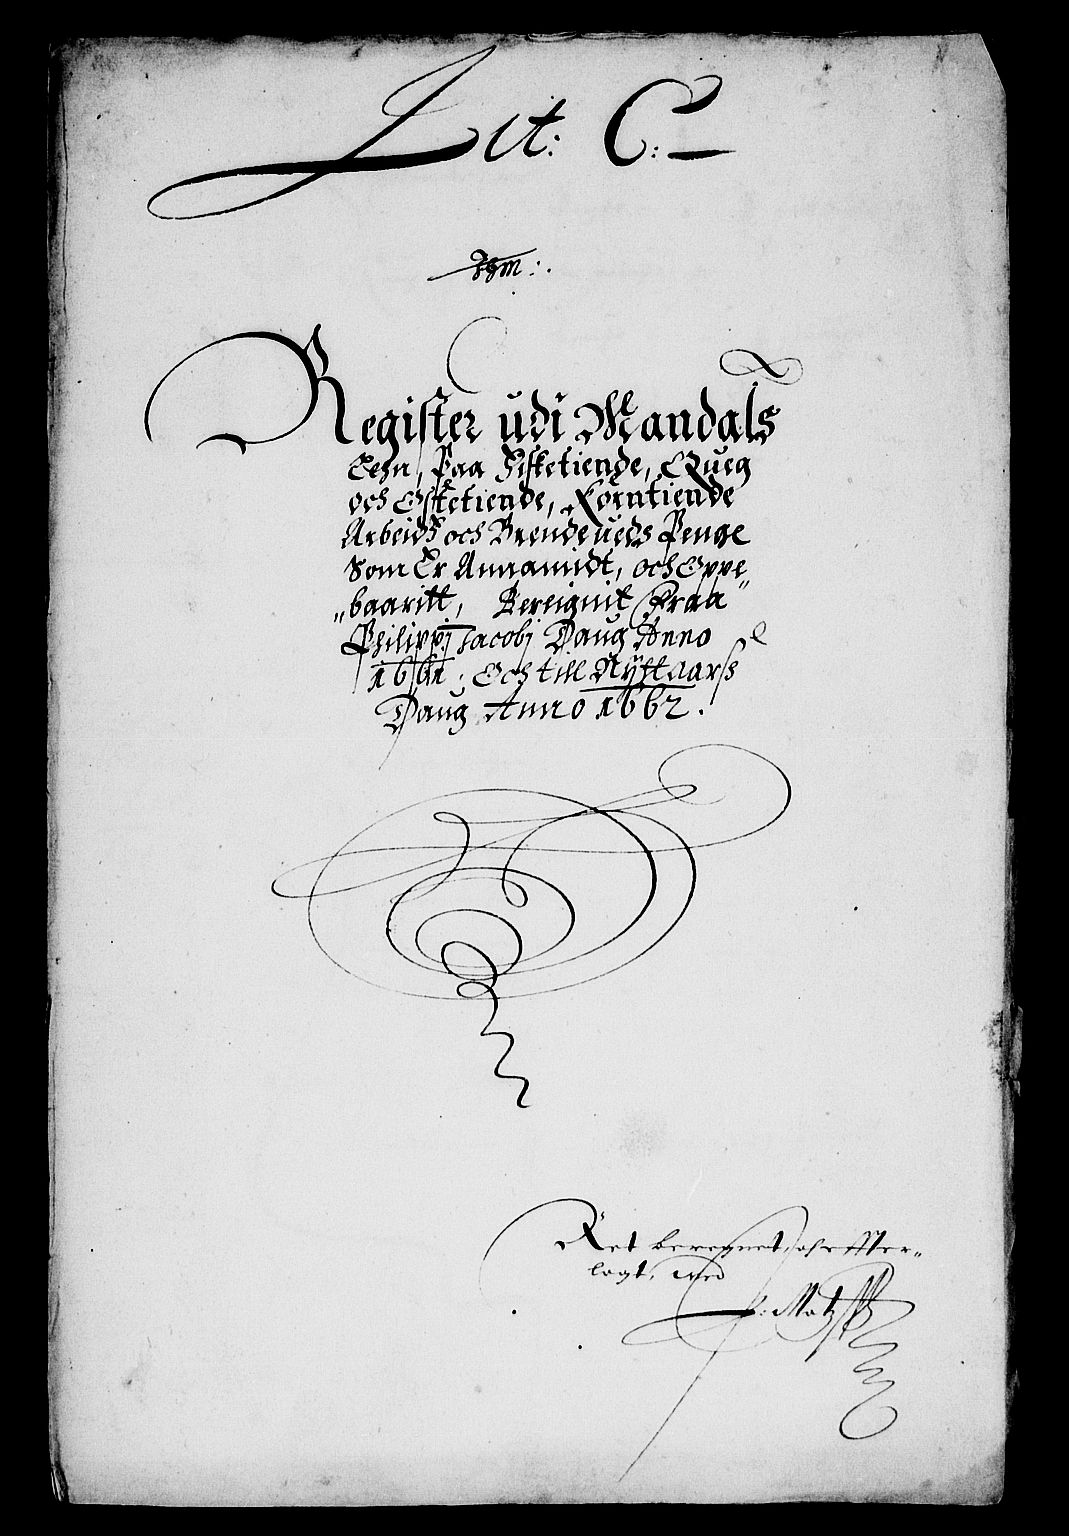 Lit: C:
Register udi Mandals
Lehn, Paa Fisketiende, Queg
och Ostetiende, Korntiende
Arbeids och Brendeueds Penge
Som Er Annamidt, och Oppe„
„baaritt, Bereignit Fraa
Philippi Jacobi Daug Anno
1661. Och till Nÿttaarsz
Daug Anno 1662.
Ret beregnet, och effter„
lagt, med